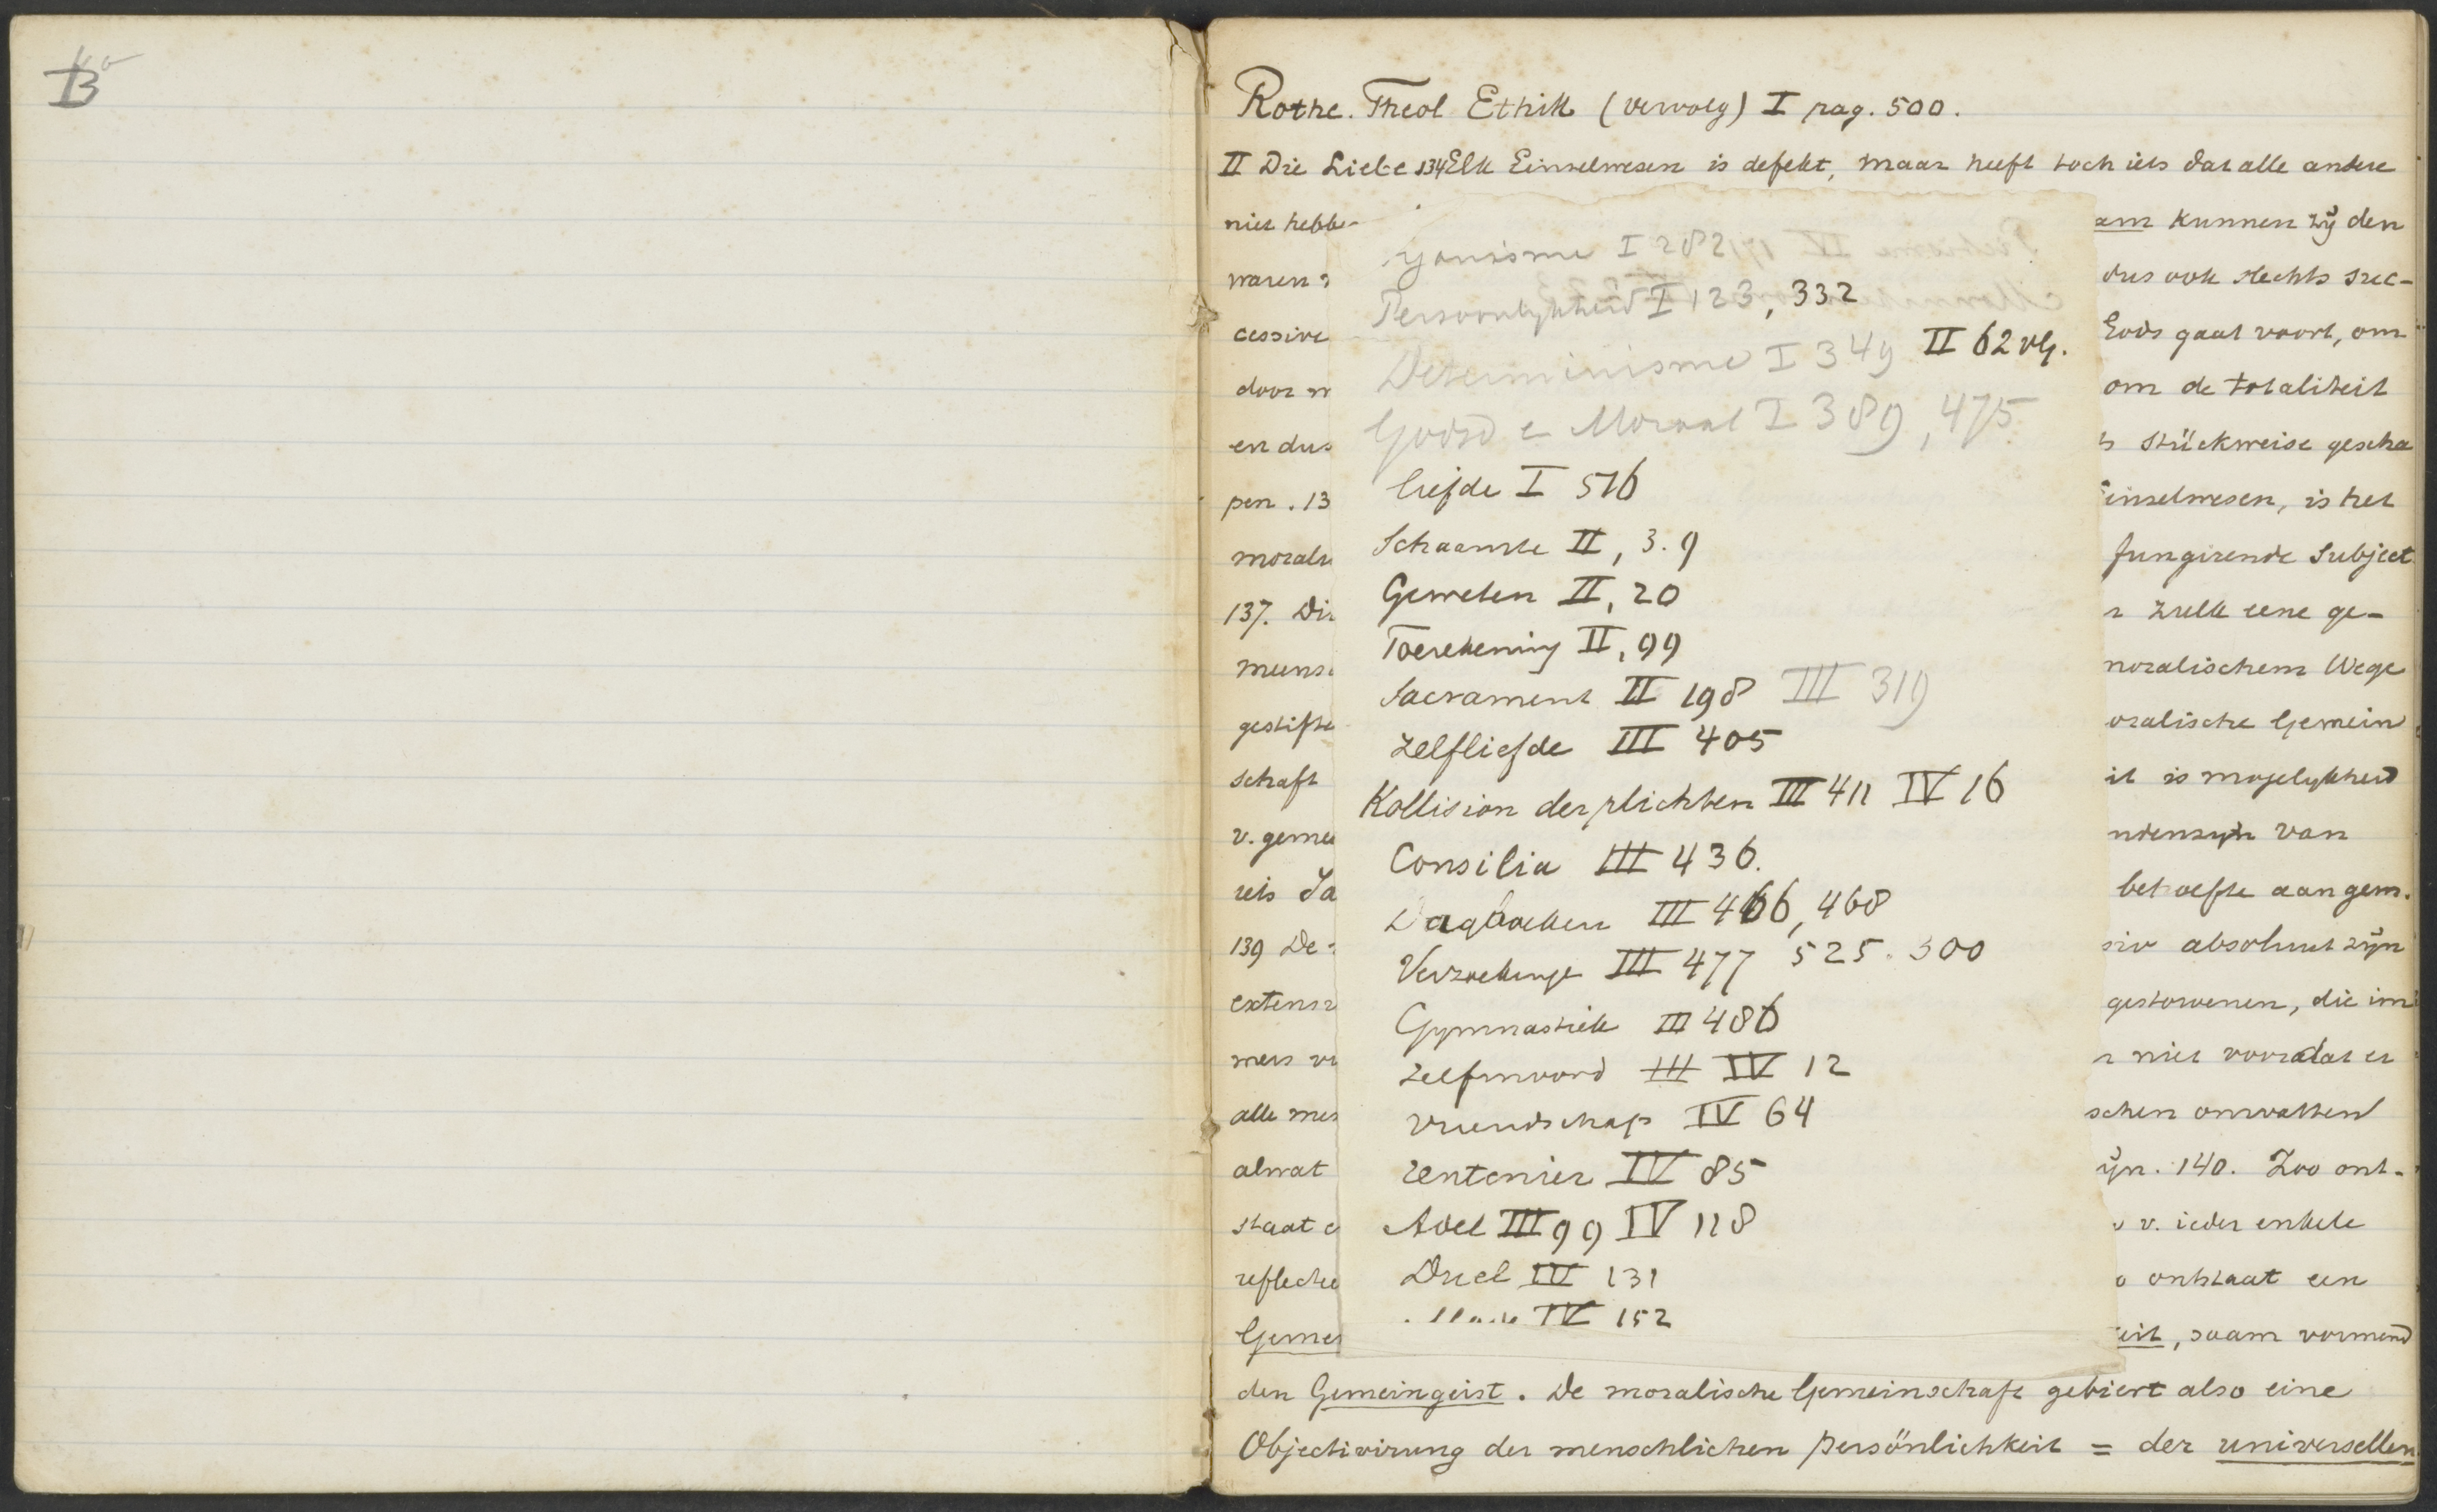 B
Rothe. Theol Ethik (vervolg) I pag. 500.
II Die Liebe 134 Elk Einzelwesen is defekt, maar heeft toch iets dat alle andere
niet hebbe
am kunnen zij den
waren
dus ook slechts suc-
cessive
Gods gaat voort, om
door
om de totaliteit
en dus
stückweise gescha
pen. 13
einzelwesen, is het
morali
fungirende Subject
137. Di
zulk eene ge-
mens
moralischem Wege
gestifte
oralische Gemein
schaft
it is mogelykheid
v. geme
van
iets
behoefte aan gem.
139 De
siv absoluut zijn
extens
gestorvenen, die im
mers
niet voordat er
alle men
schen omvatten
alwat
ijn. 140. Zoo ont-
staat
v. ieder enkele
reflectee
o ontstaat een
Gemei
eit, saam vormend
den Gemeingeist. De moralische Gemeinschaft gebiert also eine
Objectivirung der menschlichen Persönlichkeit = der universellen
I 282
Persoonlykheid I 123, 332
Determinisme I 349 II 62 vlg.
Godsd e Moraal I 389, 475
liefde I 516
Schaamte II, 3. 9
Geweten II, 20
Toerekening II, 99
Sacrament II 198 III 319
Zelfliefde III 405
Kollision der plichten III 411 IV 16
Consilia III 436.
Dagboeken III 466, 468
Verzoekinge III 477 525. 500
Gymnastiek III 486
Zelfmoord III IV 12
Vriendschap IV 64
rentenier IV 85
Adel III 99 IV 118
Duel IV 131
IV 152